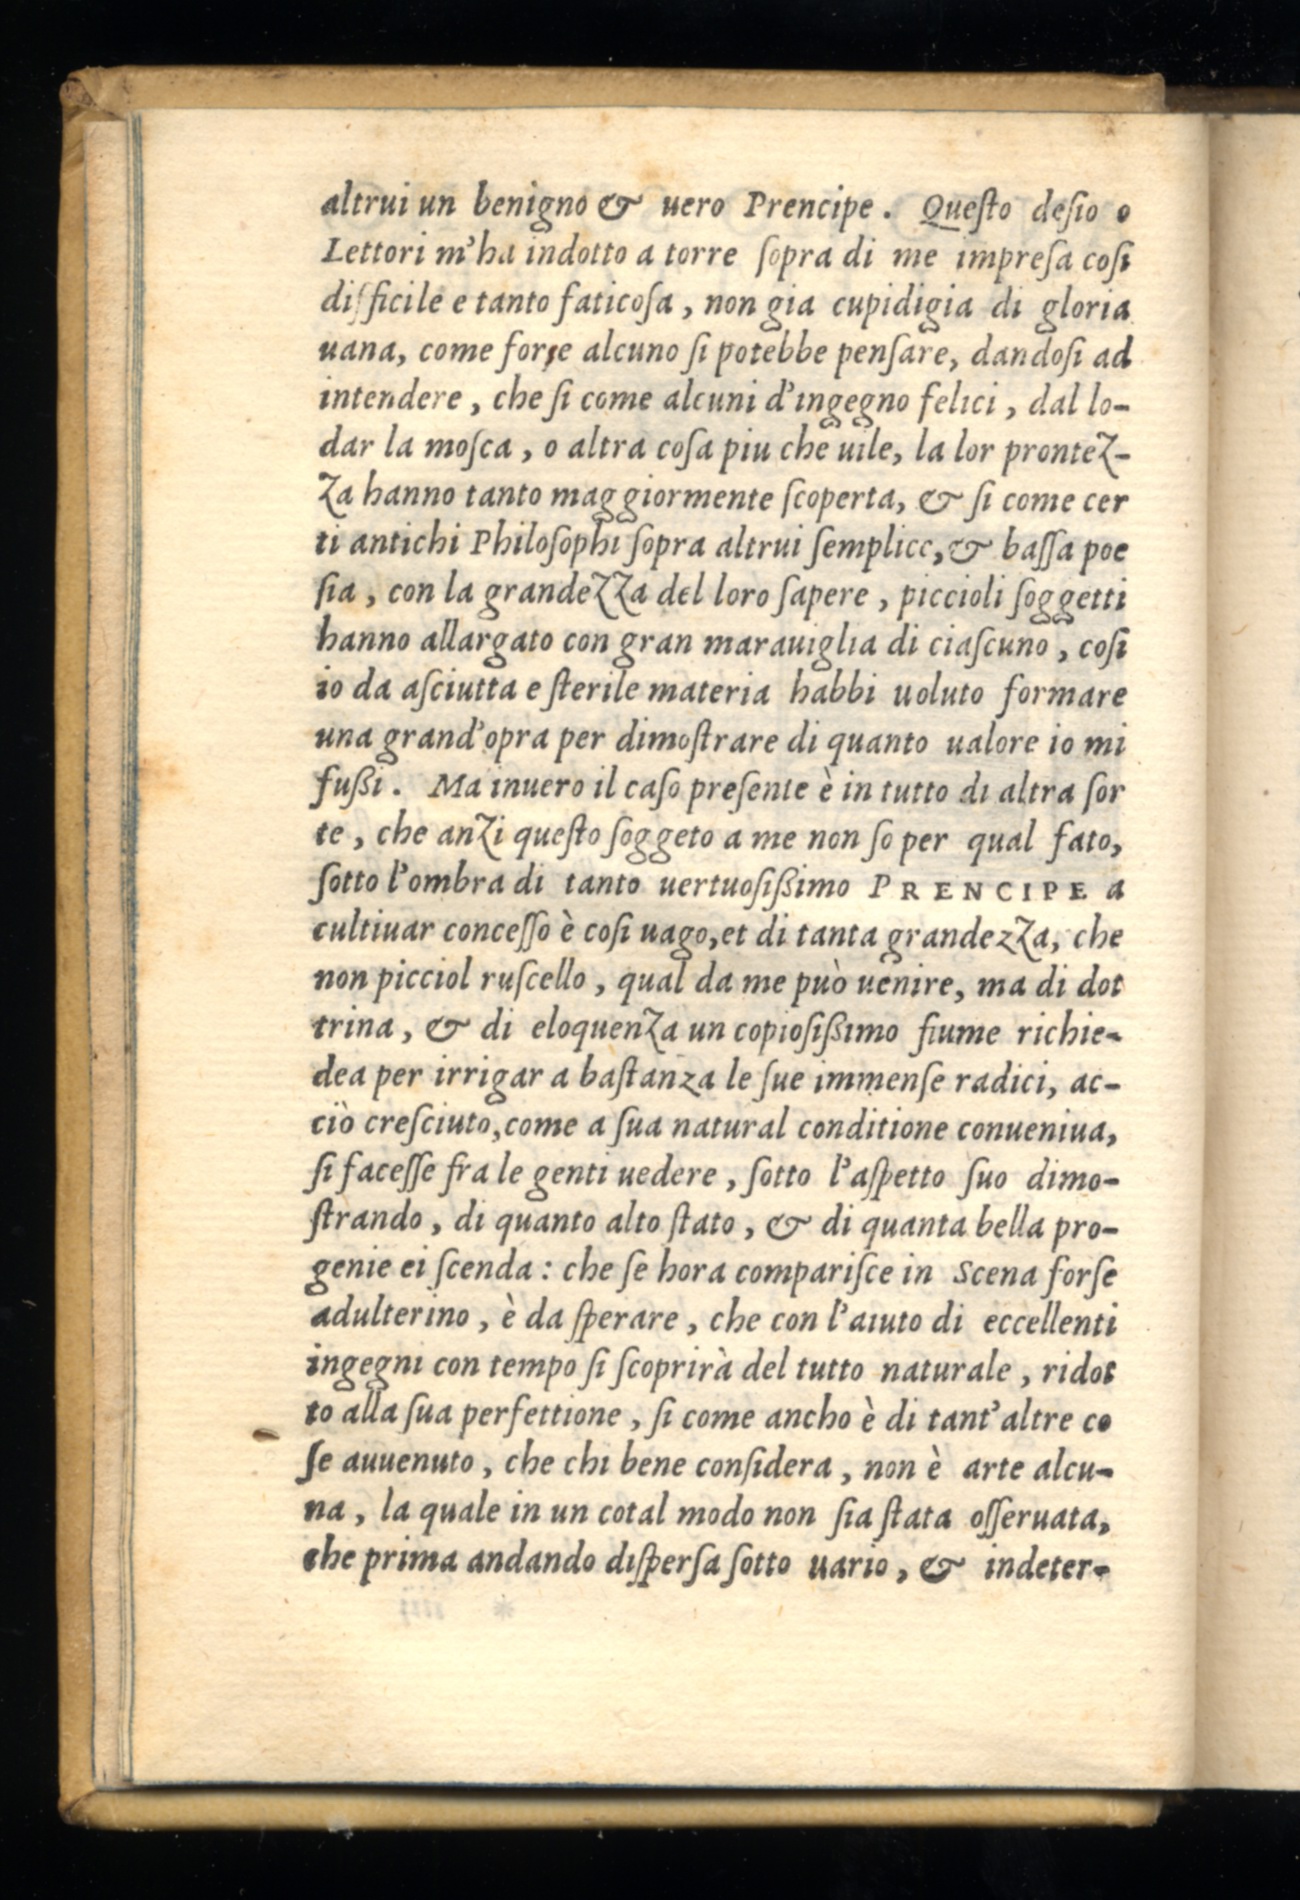 altrui un benigno & uero Prencipe. Queſto deſio o
Lettori m'ha indotto a torre ſopra di me impreſa coſi
difficile e tanto faticoſa, non gia cupidigia di gloria
uana, come forſe alcuno ſi potebbe penſare, dandoſi ad
intendere, che ſi come alcuni d'ingegno felici, dal lo-
dar la moſca, o altra coſa piu che uile, la lor prontez-
za hanno tanto maggiormente ſcoperta, & ſi come cer
ti antichi Philoſophi ſopra altrui ſemplice, & baſſa poe
ſia, con la grandezza del loro ſapere, piccioli ſoggetti
hanno allargato con gran marauiglia di ciaſcuno, coſi
io da aſciutta e ſterile materia habbi uoluto formare
una grand'opra per dimoſtrare di quanto ualore io mi
fußi. Ma inuero il caſo preſente è in tutto di altra ſor
te, che anzi queſto ſoggeto a me non ſo per qual fato,
ſotto l'ombra di tanto uertuoſißimo PRENCIPE a
cultiuar conceſſo è coſi uago, et di tanta grandezza, che
non picciol ruſcello, qual da me può uenire, ma di dot
trina, & di eloquenza un copioſißimo fiume richie-
dea per irrigar a baſtanza le ſue immenſe radici, ac-
ciò creſciuto, come a ſua natural conditione conueniua,
ſi faceſſe fra le genti uedere, ſotto l'aſpetto ſuo dimo-
ſtrando, di quanto alto ſtato, & di quanta bella pro-
genie ei ſcenda: che ſe hora compariſce in Scena forſe
adulterino, è da ſperare, che con l'aiuto di eccellenti
ingegni con tempo ſi ſcoprirà del tutto naturale, ridot
to alla ſua perfettione, ſi come ancho è di tant'altre co
ſe auuenuto, che chi bene conſidera, non è arte alcu-
na, la quale in un cotal modo non ſia ſtata oſſeruata,
che prima andando diſperſa ſotto uario, & indeter-